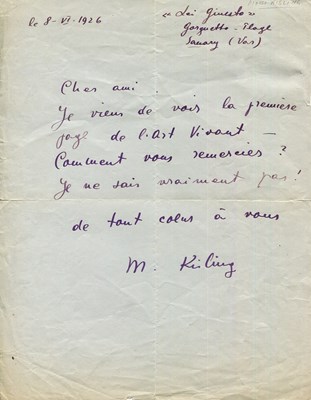 le 8-VI-1926
« Lei Ginesto »
Gorguette-Plage
Sanary (Var)
Cher ami.
Je viens de voir la première
page de l'Art Vivant —
Comment vous remercier ?
Je ne sais vraiment pas !
de tout coeur à vous
M. Kisling